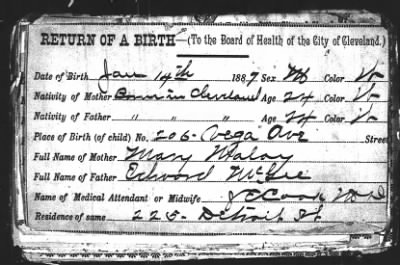 RETURN OF A BIRTH—(To the Board of Health of the City of Cleveland.)
Date of Birth Jan 14th 1887 Sex M Color W
Nativity of Mother Born in Cleveland Age 24 Color W
Nativity of Father " " " Age 24 Color W
Place of Birth (of child) No. 206 Vega Ave Street
Full Name of Mother Mary Maloy
Full Name of Father Edward McGee
Name of Medical Attendant or Midwife Cook MD
Residence of same 225 Detroit St.